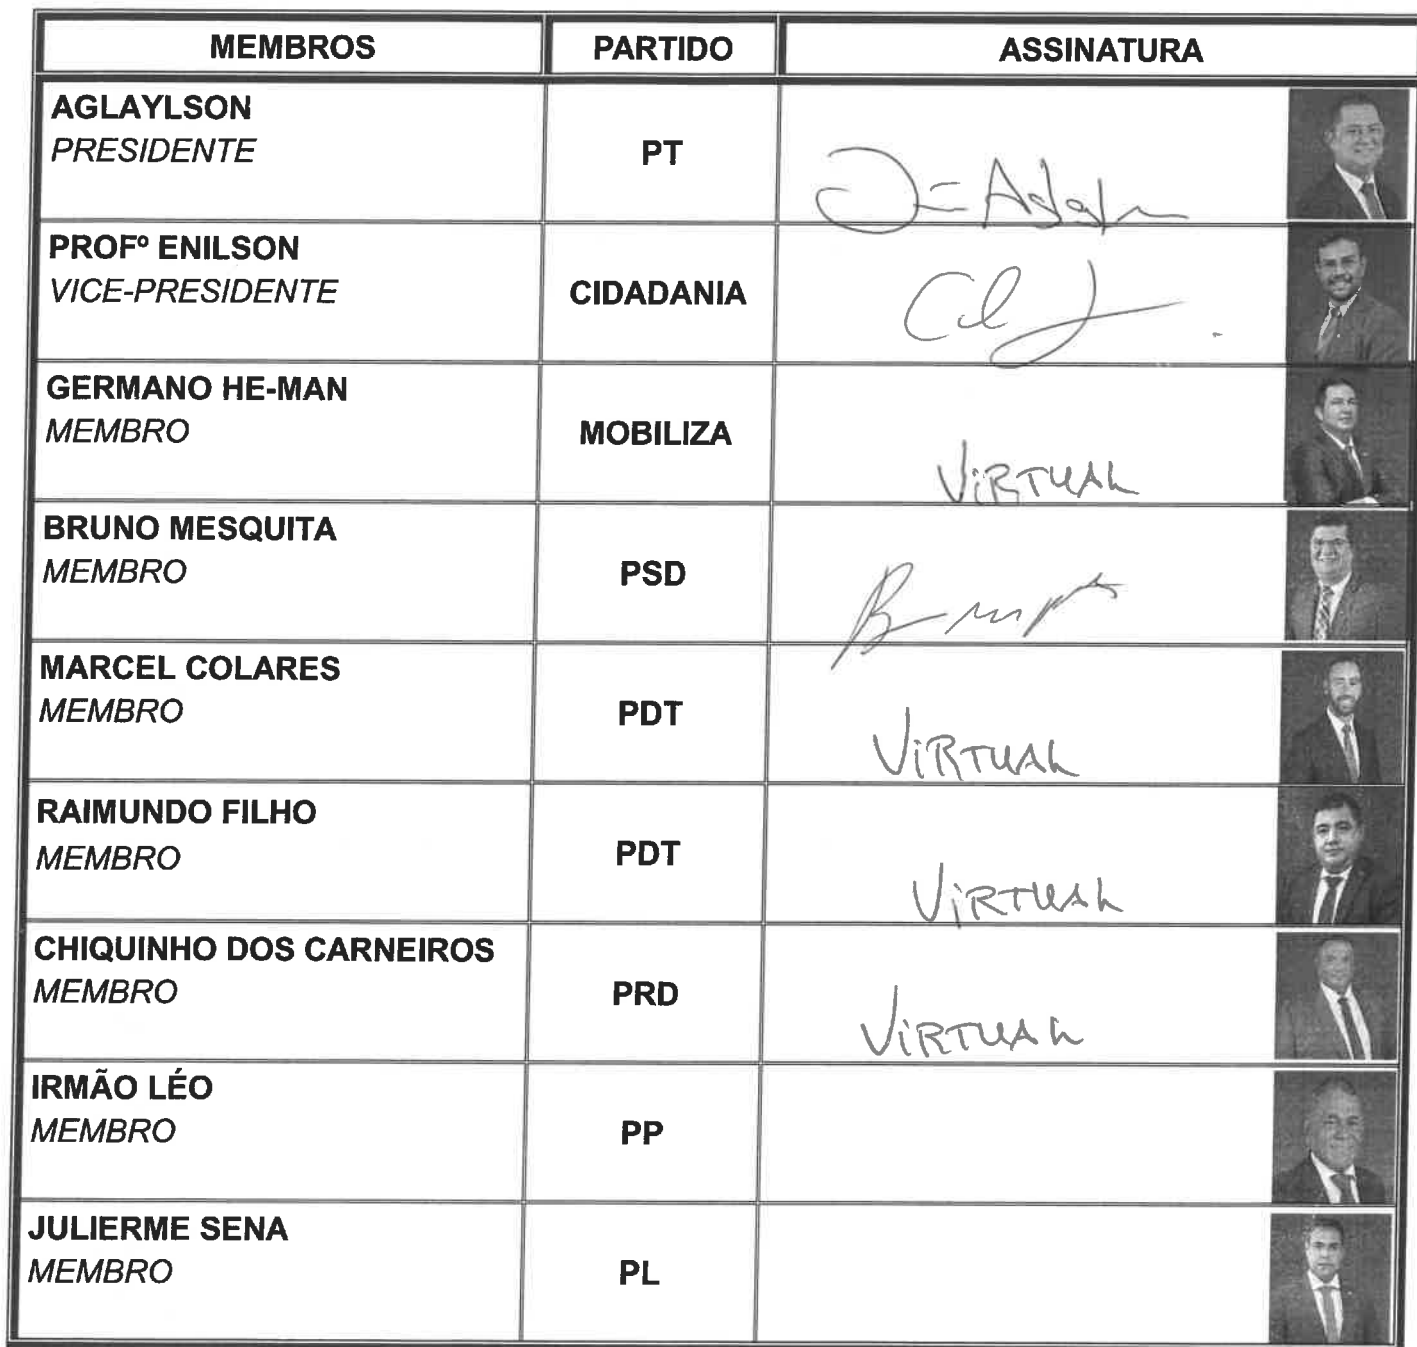 MEMBROS PARTIDO ASSINATURA
AGLAYLSON
PRESIDENTE
PT
PROFº ENILSON
VICE-PRESIDENTE
CIDADANIA
GERMANO HE-MAN
MEMBRO
MOBILIZA
ViRTUAL
BRUNO MESQUITA
MEMBRO
PSD
MARCEL COLARES
MEMBRO
PDT
ViRTUAL
RAIMUNDO FILHO
MEMBRO
PDT
ViRTUAL
CHIQUINHO DOS CARNEIROS
MEMBRO
PRD
ViRTUAL
IRMÃO LÉO
MEMBRO
PP
JULIERME SENA
MEMBRO
PL